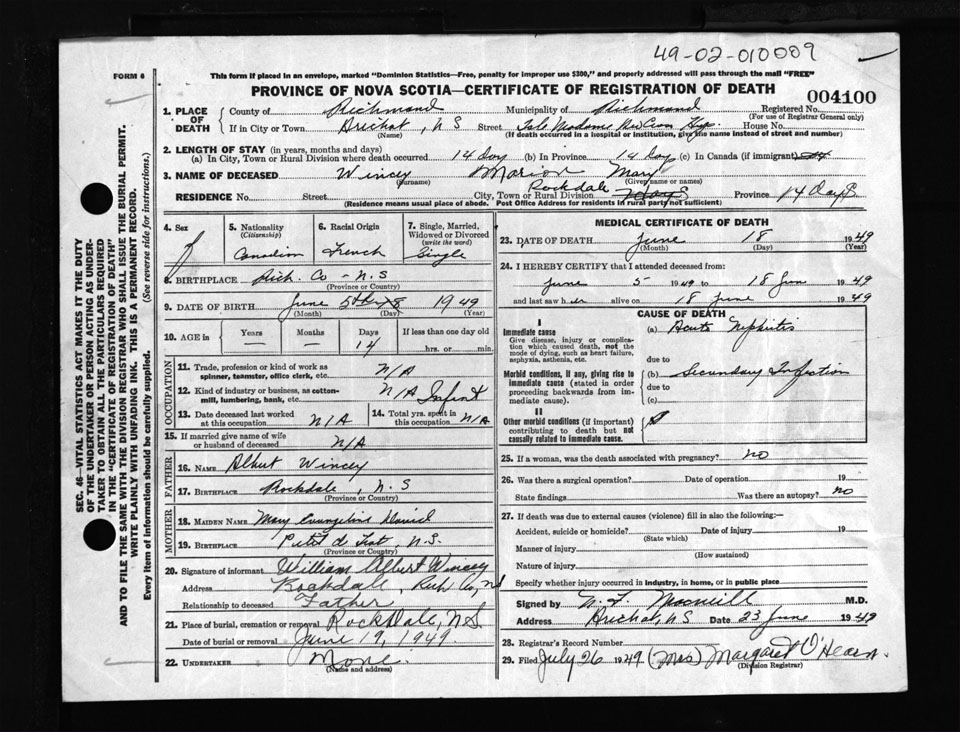 49-02-010009
FORM 6
This form if placed in an envelope, marked "Dominion Statistics—Free, penalty for improper use $300," and properly addressed will pass through the mail "FREE"
PROVINCE OF NOVA SCOTIA—CERTIFICATE OF REGISTRATION OF DEATH
004100
1. PLACE OF DEATH
County of Richmond Municipality of Richmond Registered No.
(For use of Registrar General only)
If in City or Town Arichat, N S Street Isle Madame House No.
(Name) (If death occurred in a hospital or institution, give the name instead of street and number)
2. LENGTH OF STAY (in years, months and days)
(a) In City, Town or Rural Division where death occurred 14 Day (b) In Province 14 Day (c) In Canada (if immigrant)
3. NAME OF DECEASED Wincey Marion Mary
(Surname) (Given name or names)
RESIDENCE No. Street City, Town or Rural Division Rockdale Province 14 Days
(Residence means usual place of abode. Post Office Address for residents in rural parts not sufficient)
4. Sex f
5. Nationality (Citizenship) Canadian
6. Racial Origin French
7. Single, Married, Widowed or Divorced (write the word) Single
8. BIRTHPLACE Rich. Co - N.S
(Province or Country)
9. DATE OF BIRTH June 5th 1949
(Month) (Day) (Year)
10. AGE in Years Months Days If less than one day old
— — 14 hrs. or min.
OCCUPATION
11. Trade, profession or kind of work as spinner, teamster, office clerk, etc. N/A
12. Kind of industry or business, as cotton-mill, lumbering, bank, etc. N/A Infant
13. Date deceased last worked at this occupation N/A
14. Total yrs. spent in this occupation N/A
15. If married give name of wife or husband of deceased N/A
FATHER
16. NAME Albert Wincey
17. BIRTHPLACE Rockdale, N.S
(Province or Country)
MOTHER
18. MAIDEN NAME Mary Evangeline David
19. BIRTHPLACE Petit de Grat, N.S.
(Province or Country)
20. Signature of informant William Albert Wincey
Address Rockdale, Rich Co, NS
Relationship to deceased Father
21. Place of burial, cremation or removal Rockdale, N.S.
Date of burial or removal June 19, 1949
22. UNDERTAKER None.
(Name and address)
MEDICAL CERTIFICATE OF DEATH
23. DATE OF DEATH June 18 1949
(Month) (Day) (Year)
24. I HEREBY CERTIFY that I attended deceased from:
June 5- 1949 to 18 June 1949
and last saw her alive on 18 June 1949
CAUSE OF DEATH
I
Immediate cause (a) Acute Nephritis
Give disease, injury or complication which caused death, not the mode of dying, such as heart failure, asphyxia, asthenia, etc.
due to
Morbid conditions, if any, giving rise to immediate cause (stated in order proceeding backwards from immediate cause).
(b) Secondary Infection
due to
(c)
II
Other morbid conditions (if important) contributing to death but not causally related to immediate cause.
25. If a woman, was the death associated with pregnancy? no
26. Was there a surgical operation? Date of operation 19
State findings Was there an autopsy? no
27. If death was due to external causes (violence) fill in also the following:—
Accident, suicide or homicide? Date of injury 19
(State which)
Manner of injury
(How sustained)
Nature of injury
Specify whether injury occurred in industry, in home, or in public place
Signed by M.D.
Address Arichat, NS Date 23 June 1949
28. Registrar's Record Number
29. Filed July 26 1949 (Mrs) Margaret O'Hearn
(Division Registrar)
SEC. 46—VITAL STATISTICS ACT MAKES IT THE DUTY
OF THE UNDERTAKER OR PERSON ACTING AS UNDER-
TAKER TO OBTAIN ALL THE PARTICULARS REQUIRED
IN THE "CERTIFICATE OF REGISTRATION OF DEATH"
AND TO FILE THE SAME WITH THE DIVISION REGISTRAR WHO SHALL ISSUE THE BURIAL PERMIT.
WRITE PLAINLY WITH UNFADING INK. THIS IS A PERMANENT RECORD.
Every item of information should be carefully supplied. (See reverse side for instructions.)